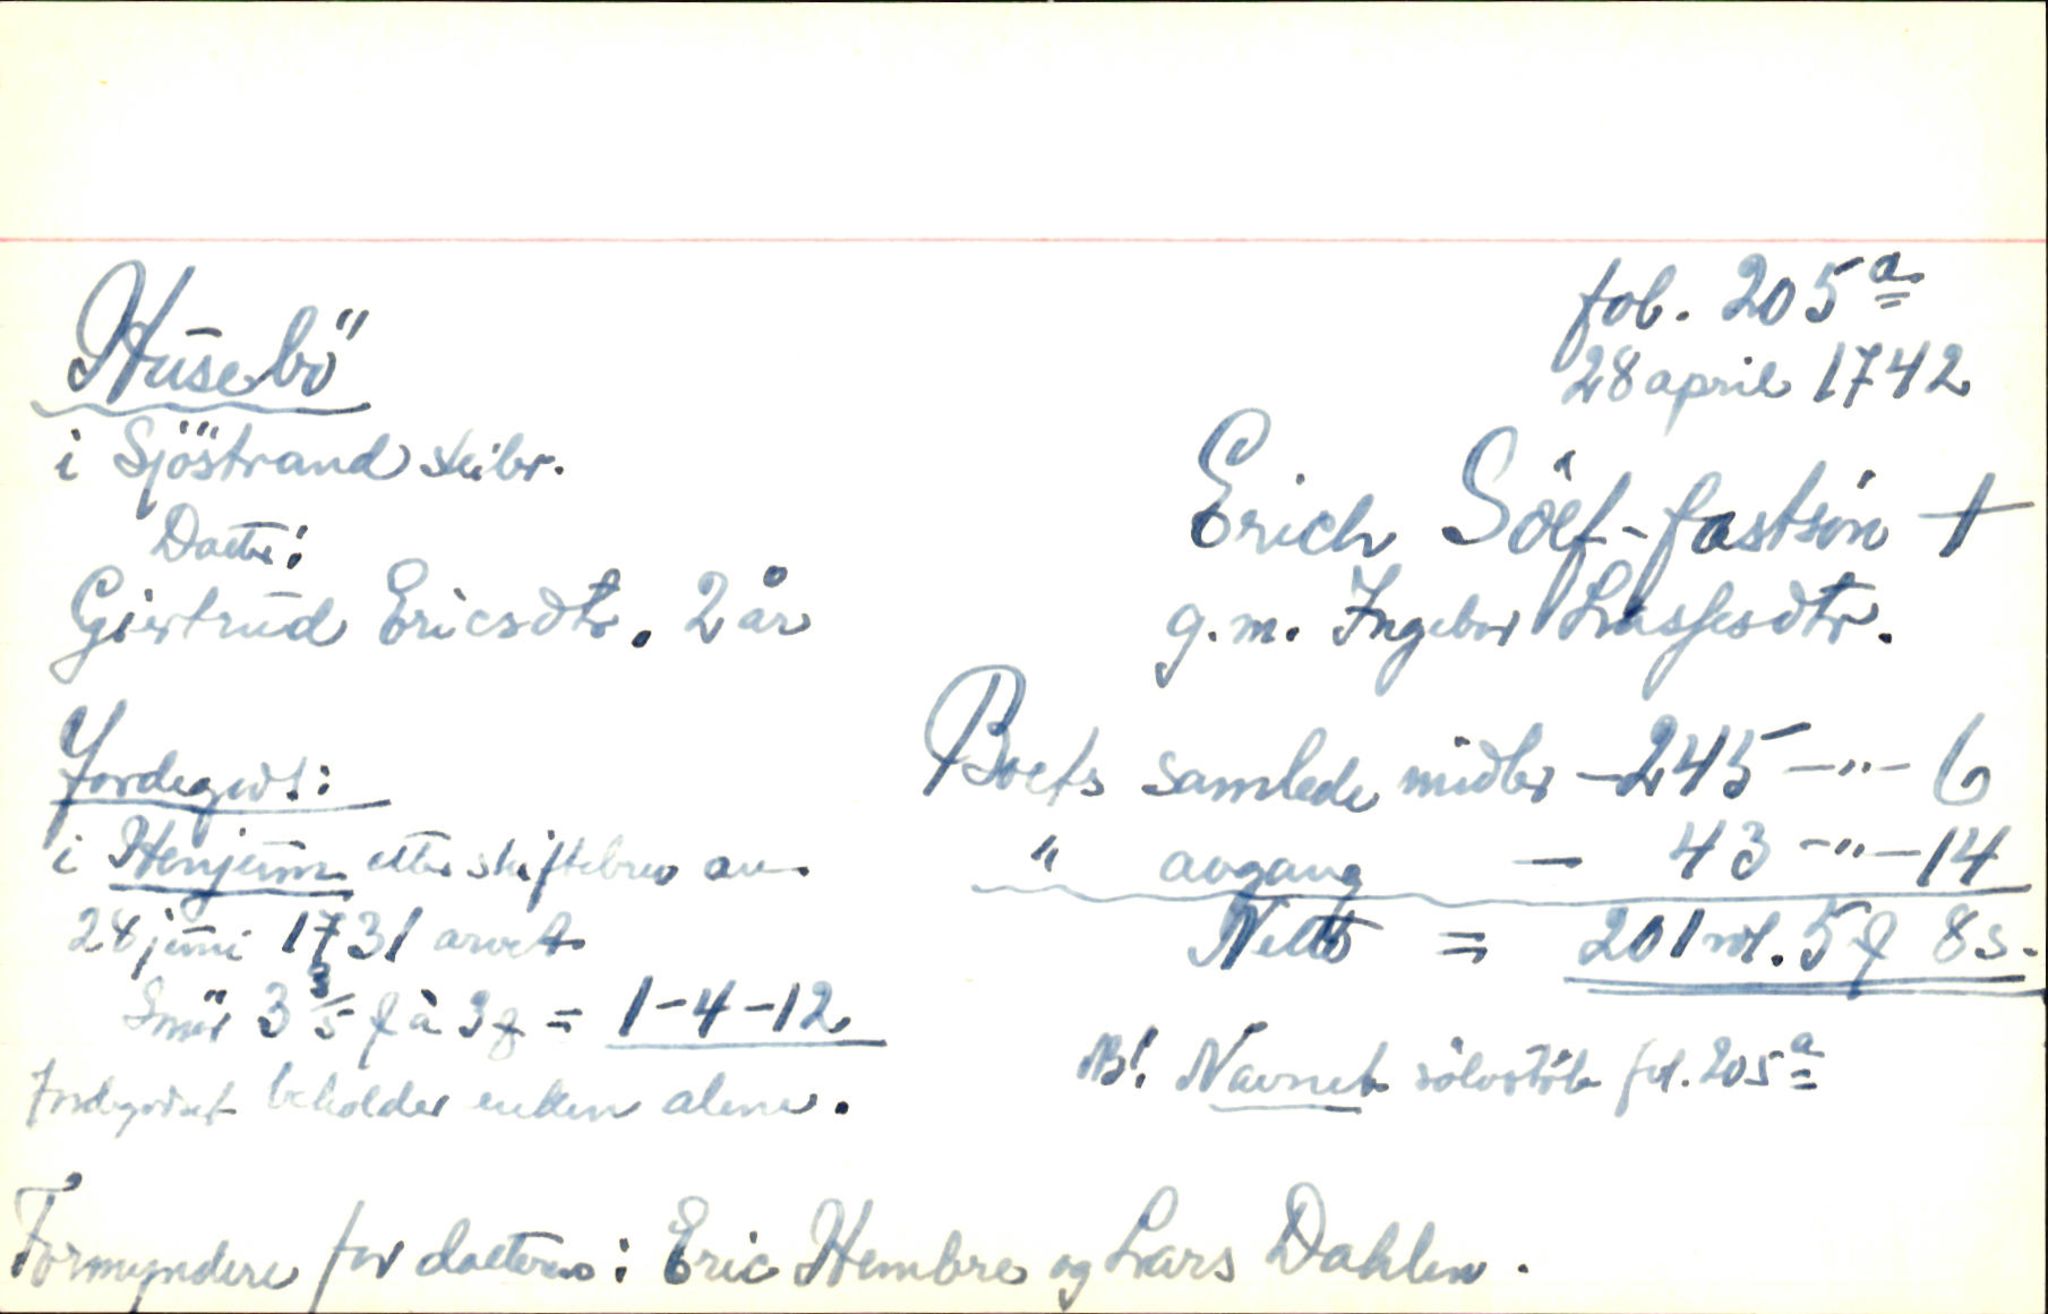 fol. 205a
28 april 1742
Husebö
i Sjöstrand skibr.
Erich Sölf-fastsön +
Datter:
Giertrud Ericsdtr. 2 år
g.m. Ingebor Lassesdtr.
Jordegods:
Boets samlede midler - 245 - " - 6
i Henjum etter skiftebrev av
" avgang - 43 - " - 14
28 juni 1731 arvet
Netto = 201 rdl. 5 ƒ 8 s.
Smör 3 3/5 ƒ à 3 ƒ = 1-4-12
NB! Navnet sölvstöb fol. 205a
Jordegodset beholder enken alene.
Formyndere for datteren: Eric Hembre og Lars Dahlen.